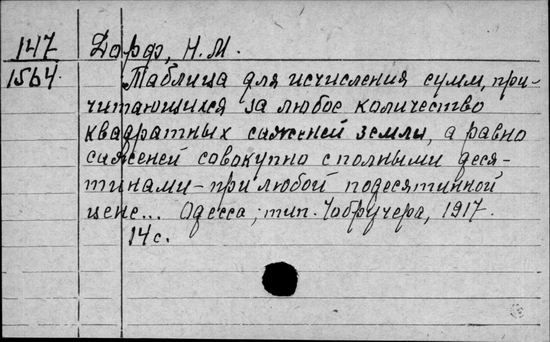 147 Дорф, Н. М.
1564. Таблица для исчисления сумм, при-
читающихся за любое количество
квадратных саженей земли, а равно
саженей совокупно с полными деся-
тинами – при любой подесятинной
цене... Одесса, тип. Чобручера, 1917.
14 с.